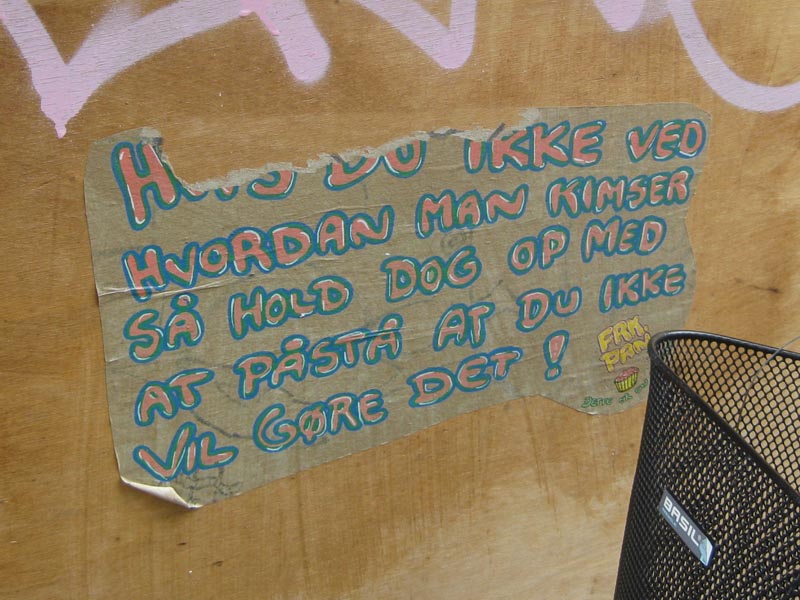 HVIS DU IKKE VED
HVORDAN MAN KIMSER
SÅ HOLD DOG OP MED
AT PÅSTÅ AT DU IKKE
VIL GØRE DET!
FRK.
BASIL